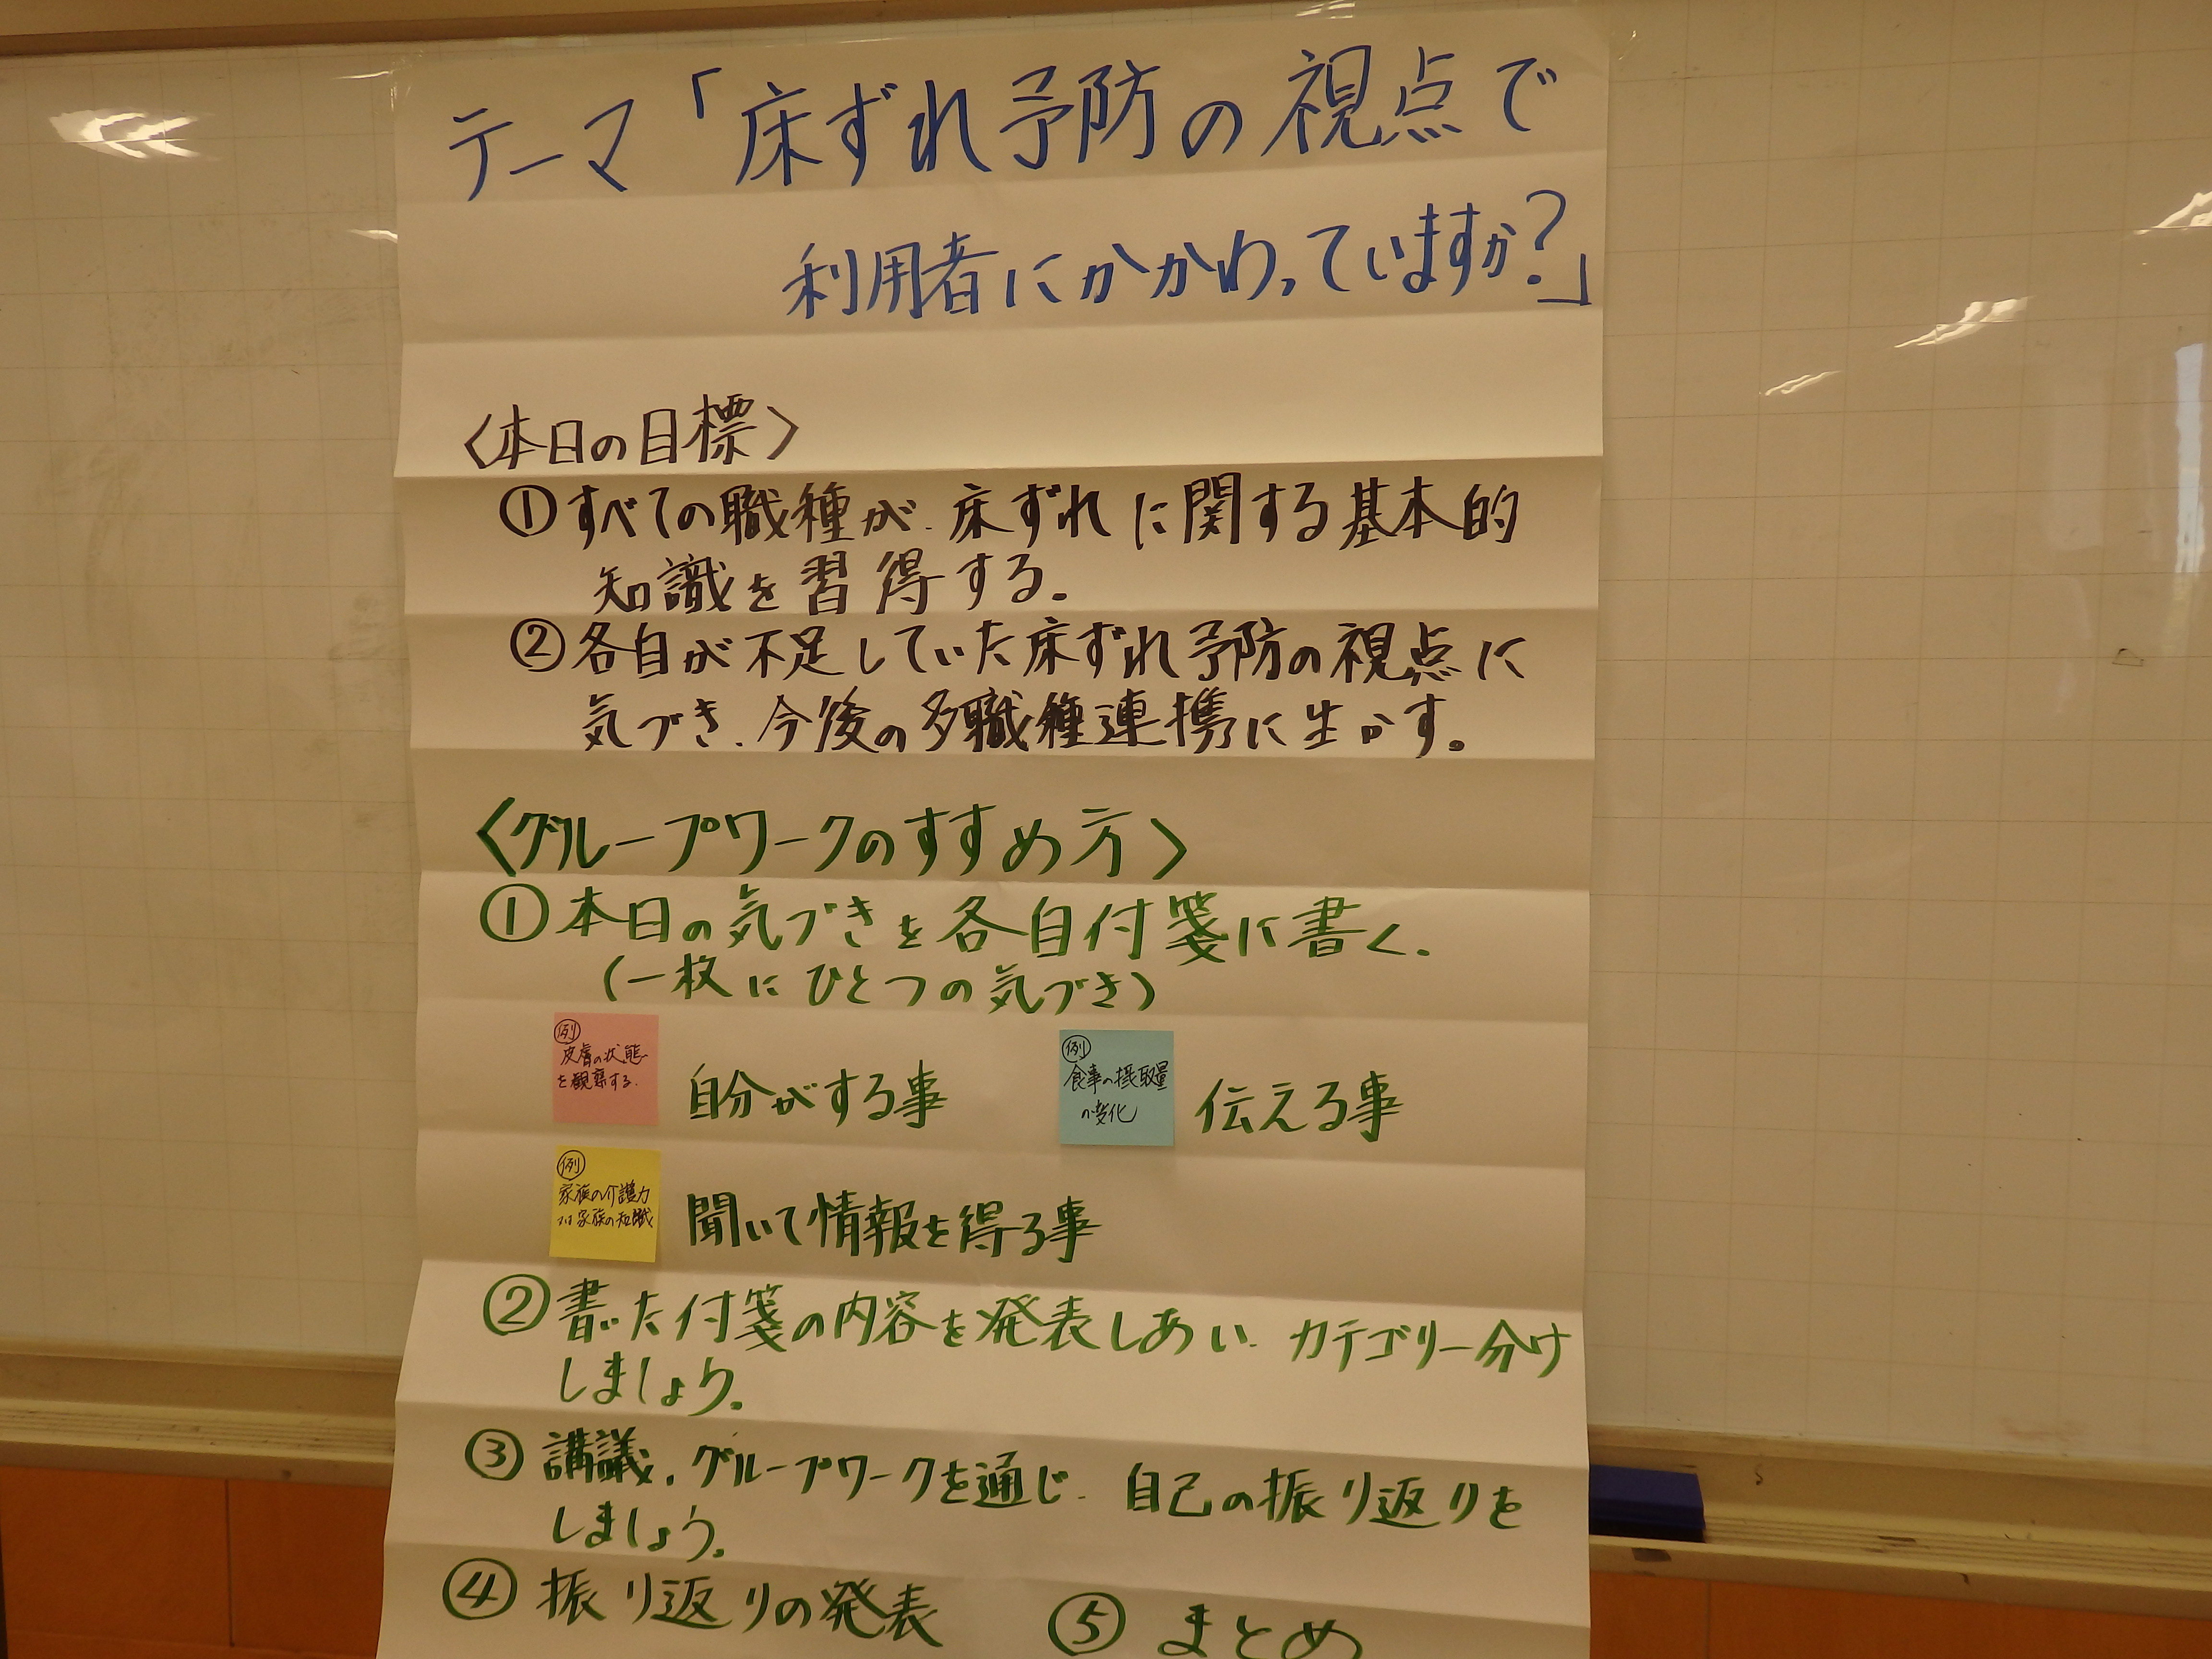 テーマ「床ずれ予防の視点で
利用者にかかわっていますか?」
〈本日の目標〉
①すべての職種が、床ずれに関する基本的
知識を習得する。
②各自が不足していた床ずれ予防の視点に
気づき、今後の多職種連携に生かす。
〈グループワークのすすめ方〉
①本日の気づきを各自付箋に書く。
(一枚にひとつの気づき)
例
皮膚の状態
を観察する。
自分がする事
例
食事の摂取量
の変化
伝える事
例
家族の介護力
家族の知識
聞いて情報を得る事
②書いた付箋の内容を発表しあい、カテゴリー分け
しましょう。
③講議、グループワークを通じ、自己の振り返りを
しましょう。
④振り返りの発表
⑤まとめ